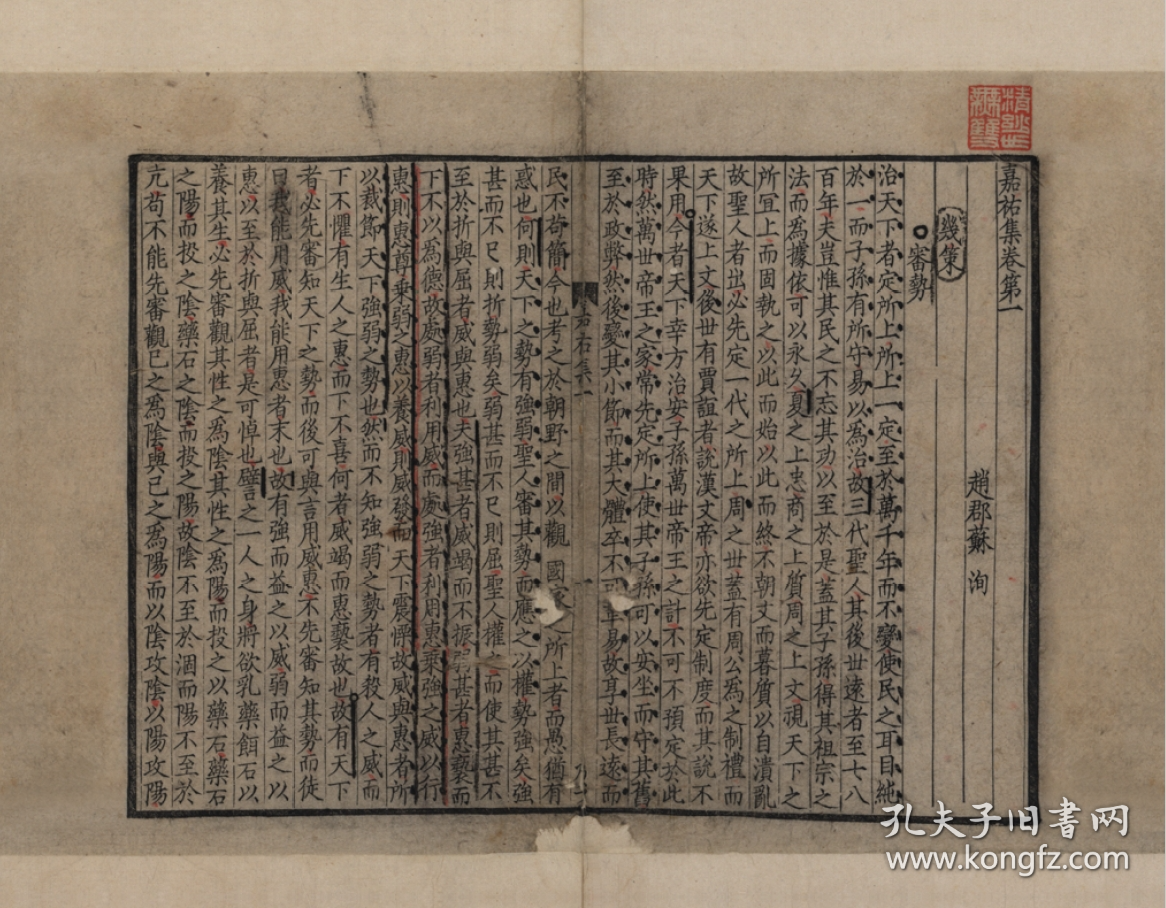 嘉祐集卷第一
趙郡蘇洵
幾策
審勢
治天下者定所上所上一定至於萬千年而不變使民之耳目純
於一而子孫有所守易以為治故三代聖人其後世遠者至七八
百年夫豈惟其民之不忘其功以至於是蓋其子孫得其祖宗之
法而為據依可以永久夏之上忠商之上質周之上文視天下之
所宜上而固執之以此而始以此而終不朝文而暮質以自潰亂
故聖人者出必先定一代之所上周之世蓋有周公為之制禮而
天下遂上文後世有賈誼者說漢文帝亦欲先定制度而其說不
果用今者天下幸方治安子孫萬世帝王之計不可不預定於此
時然萬世帝王之家常先定所上使其子孫可以安坐而守其舊
至於政弊然後變其小節而其大體卒不可革易故享世長遠而
民不苟簡今也考之於朝野之間以觀 國家之所上者而愚猶有
惑也何則天下之勢有強弱聖人審其勢而應之以權勢強矣強
甚而不已則折勢弱矣弱甚而不已則屈聖人權之而使其甚不
至於折與屈者威與惠也夫強甚者威竭而不振弱甚者惠褻而
下不以為德故處弱者利用威而處強者利用惠乘強之威以行
惠則惠尊乘弱之惠以養威則威發而天下震慄故威與惠者所
以裁節天下強弱之勢也然而不知強弱之勢者有殺人之威而
下不懼有生人之惠而下不喜何者威竭而惠褻故也故有天下
者必先審知天下之勢而後可與言用威惠不先審知其勢而徒
曰我能用威我能用惠者末也故有強而益之以威弱而益之以
惠以至於折與屈者是可悼也譬之一人之身將欲乳藥餌石以
養其生必先審觀其性之為陰其性之為陽而投之以藥石藥石
之陽而投之陰藥石之陰而投之陽故陰不至於涸而陽不至於
亢苟不能先審觀已之為陰與已之為陽而以陰攻陰以陽攻陽
孔夫子旧書网
www.kongfz.com